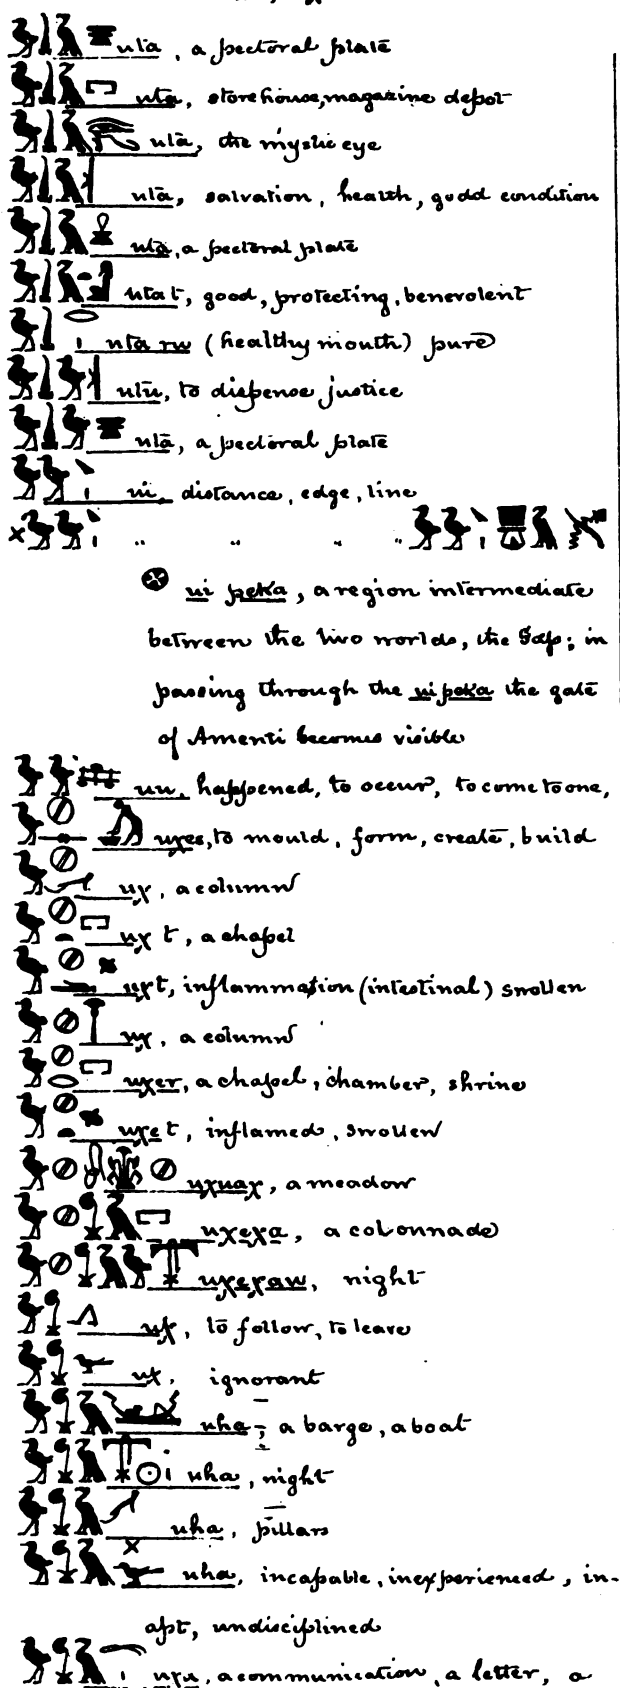 uta, a pectoral plate
uta, storehouse, magazine depot
uta, the mystic eye
uta, salvation, health, good condition
uta, a pectoral plate
utat, good, protecting, benevolent
uta rw (healthy mouth) pure
utu, to dispense justice
uta, a pectoral plate
ui, distance, edge, line
× " " " "
ui peka, a region intermediate
between the two worlds, the Gap; in
passing through the ui peka the gate
of Amenti becomes visible
uu, happened, to occur, to come to one,
uχes, to mould, form, create, build
uχ, a column
uχ t, a chapel
uχt, inflammation (intestinal) swollen
uχ, a column
uχer, a chapel, chamber, shrine
uχet, inflamed, swollen
uχuaχ, a meadow
uχeχa, a colonnade
uχeχaw, night
uχ, to follow, to leave
uχ, ignorant
uha, a barge, a boat
uha, night
uha, pillars
uha, incapable, inexperienced, in-
apt, undisciplined
uχa, a communication, a letter, a